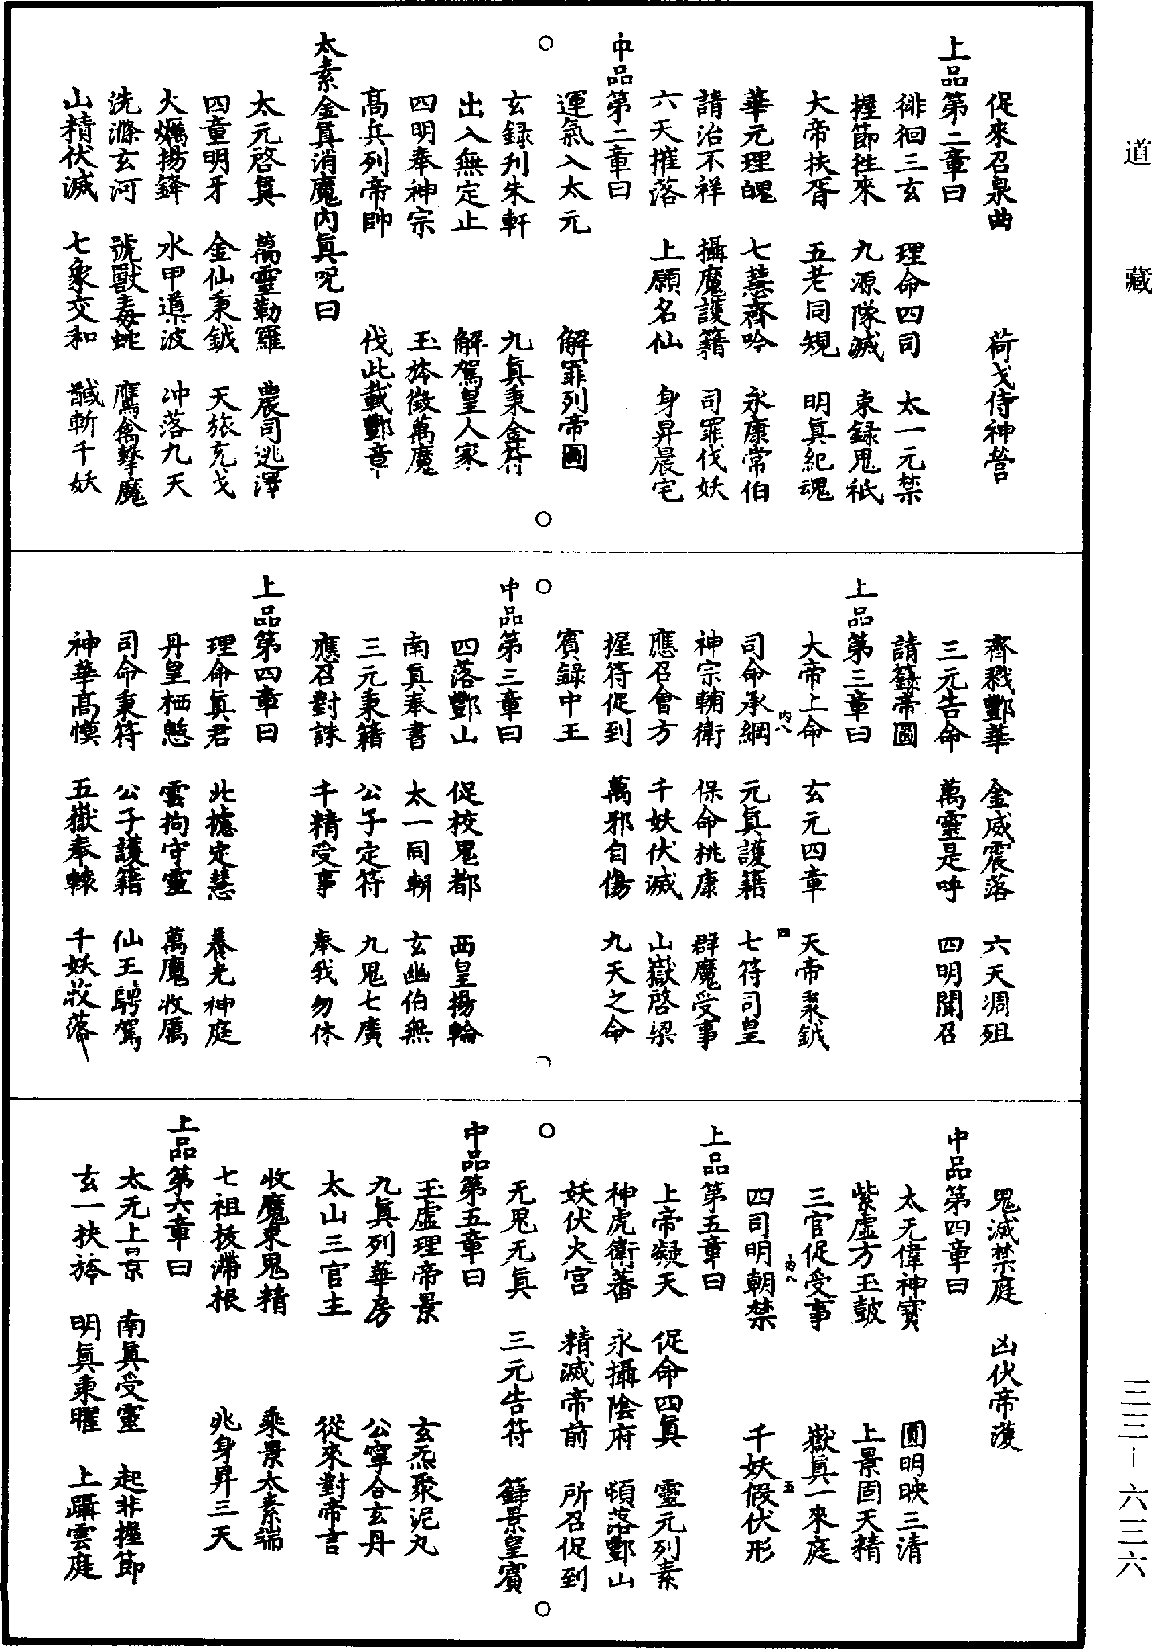 道藏
促來召泉曲　荷戈侍神營
上品第二章曰
徘徊三玄　理命四司　太一元禁
握節徃來　九源隊滅　束録鬼祇
大帝扶胥　五老同規　明真紀魂
華元理魄　七蕋齊吟　永康常伯
請治不祥　攝魔護籍　司罪伐妖
六天摧落　上願名仙　身昇晨宅
中品第二章曰
運氣入太元　解罪列帝圖
玄録刋朱軒　九真秉金符
出入無定止　解駕皇人家
四明奉神宗　玉旂徵萬魔
髙兵列帝帥　伐此載酆章
太素金真消魔内真呪曰
太元啓真　萬靈勒羅　農司逃澤
四童明牙　金仙秉鉞　天旅充戈
火爥揚鋒　水甲道波　冲落九天
洗滌玄河　號獸毒蛇　鷹禽擊魔
山精伏滅　七衆交和　馘斬千妖
齊戮酆華　金威震落　六天凋殂
三元告命　萬靈是呼　四明聞召
請籙帝圖
上品第三章曰
大帝上命　玄元四章　天帝秉鉞
司命承綱　元真護籍　七符司皇
神宗輔衛　保命桃康　群魔受事
應召會方　千妖伏滅　山嶽啓梁
握符促到　萬邪自傷　九天之命
賓録中王
中品第三章曰
四落酆山　促校鬼都　西皇揚輪
南真奉書　太一同朝　玄幽伯無
三元秉籍　公子定符　九鬼七廣
應召對誅　千精受事　奉我勿休
上品第四章曰
理命真君　此摅定慧　養光神庭
丹皇栖懸　雲拘守靈　萬魔收厲
司命秉符　公子護籍　仙王騁駕
神華髙模　五嶽奉轅　千妖收落
鬼滅禁庭　凶伏帝蒦
中品第四章曰
太无偉神寶　圓明映三清
紫虛方玉皷　上景固天精
三官促受事　嶽真一來庭
四司明朝禁　千妖假伏形
上品第五章曰
上帝凝天　促命四真　靈元列素
神虎衛蕃　永攝陰府　頓落酆山
妖伏火宫　精滅帝前　所召促到
无鬼无真　三元告符　籙景皇賓
中品第五章曰
玉虛理帝景　玄炁聚泥丸
九真列華房　公寧合玄丹
太山三官主　從來對帝言
收魔束鬼精　乘景太素端
七祖拔滯根　兆身昇三天
上品第六章曰
太无上景　南真受靈　起非握節
玄一抉旂　明真秉曜　上躡雲庭
三三－六二六